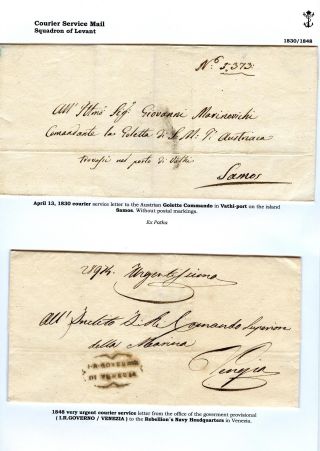 Courier Service Mail
Squadron of Levant
1830/1848
N.º 5,373
All' Illmo Sigr Giovanni Marinovich
Comandante la Goletta di S. M. I. Austriaca
trovasi nel porto di Vathi
Samos
April 13, 1830 courier service letter to the Austrian Golette Commendo in Vathi-port on the island
Samos. Without postal markings.
Ex Patka
Urgentissima
All' Inclito I. R. Comando Superiore
della Marina
Venezia
I.R.GOVERNO
DI VENEZIA
1848 very urgent courier service letter from the office of the goverment provisional
( I.R.GOVERNO / VENEZIA ) to the Rebellion's Navy Headquarters in Venezia.